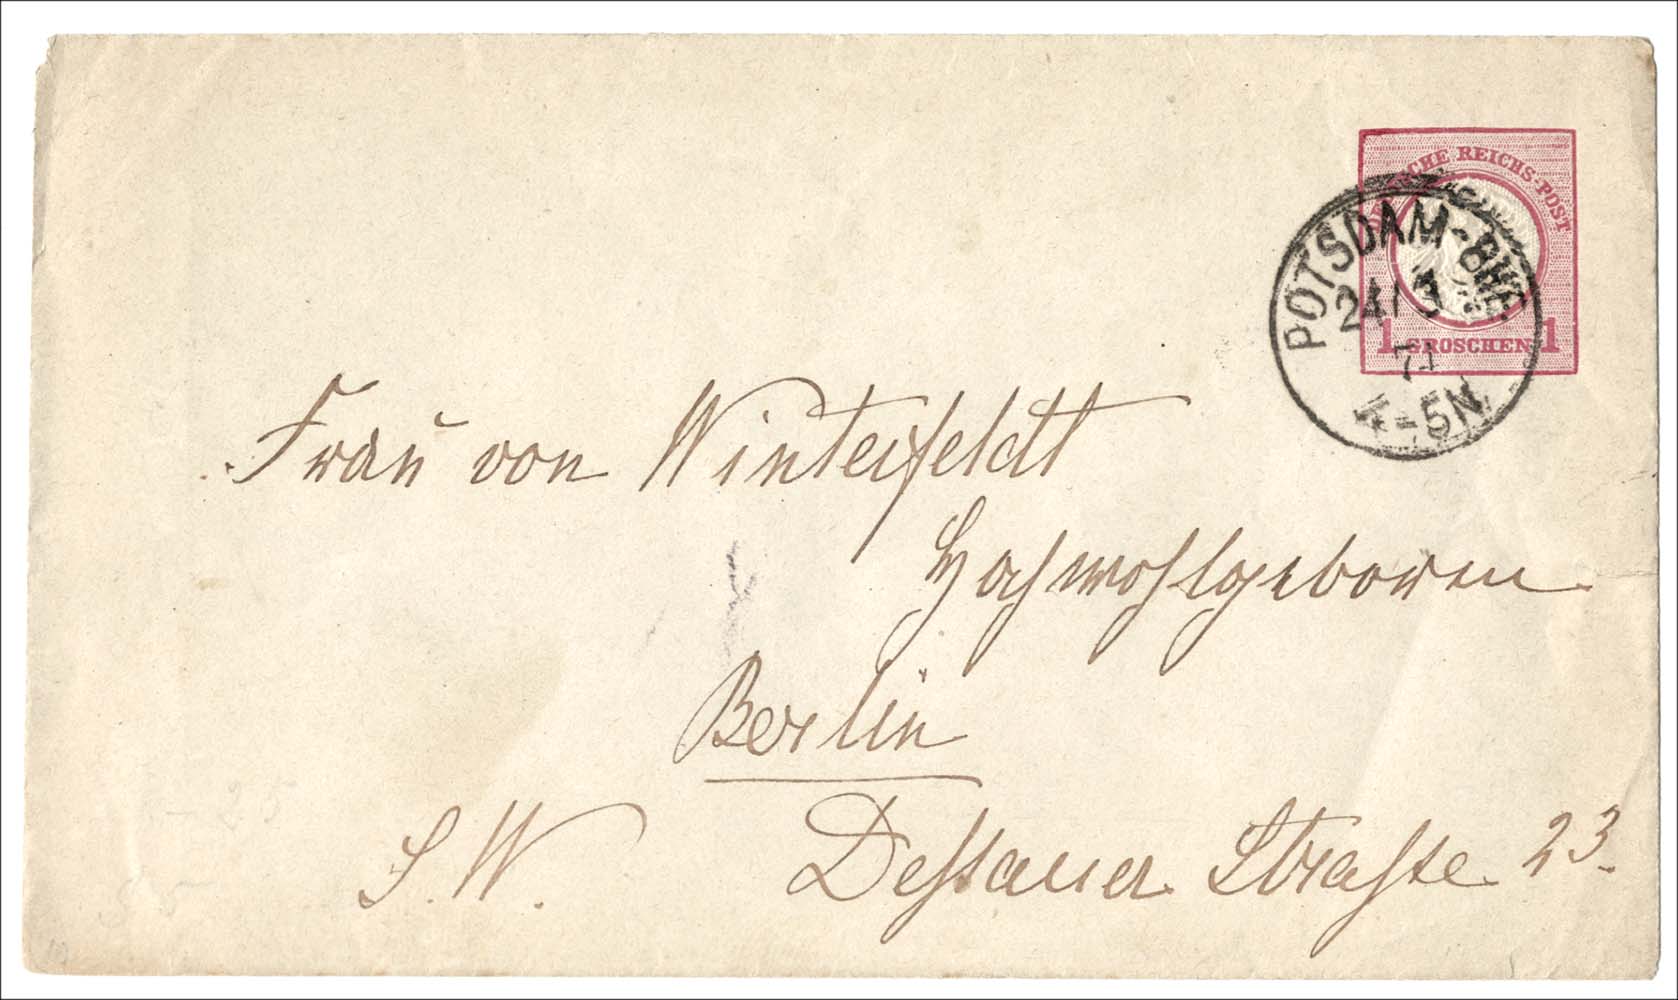 DEUTSCHE REICHS-POST
1 GROSCHEN 1
POTSDAM-BHF.
24/3
74
4-5N
Frau von Winterfeldt
Hochwohlgeboren
Berlin
S. W. Dessauer Strasse 23.